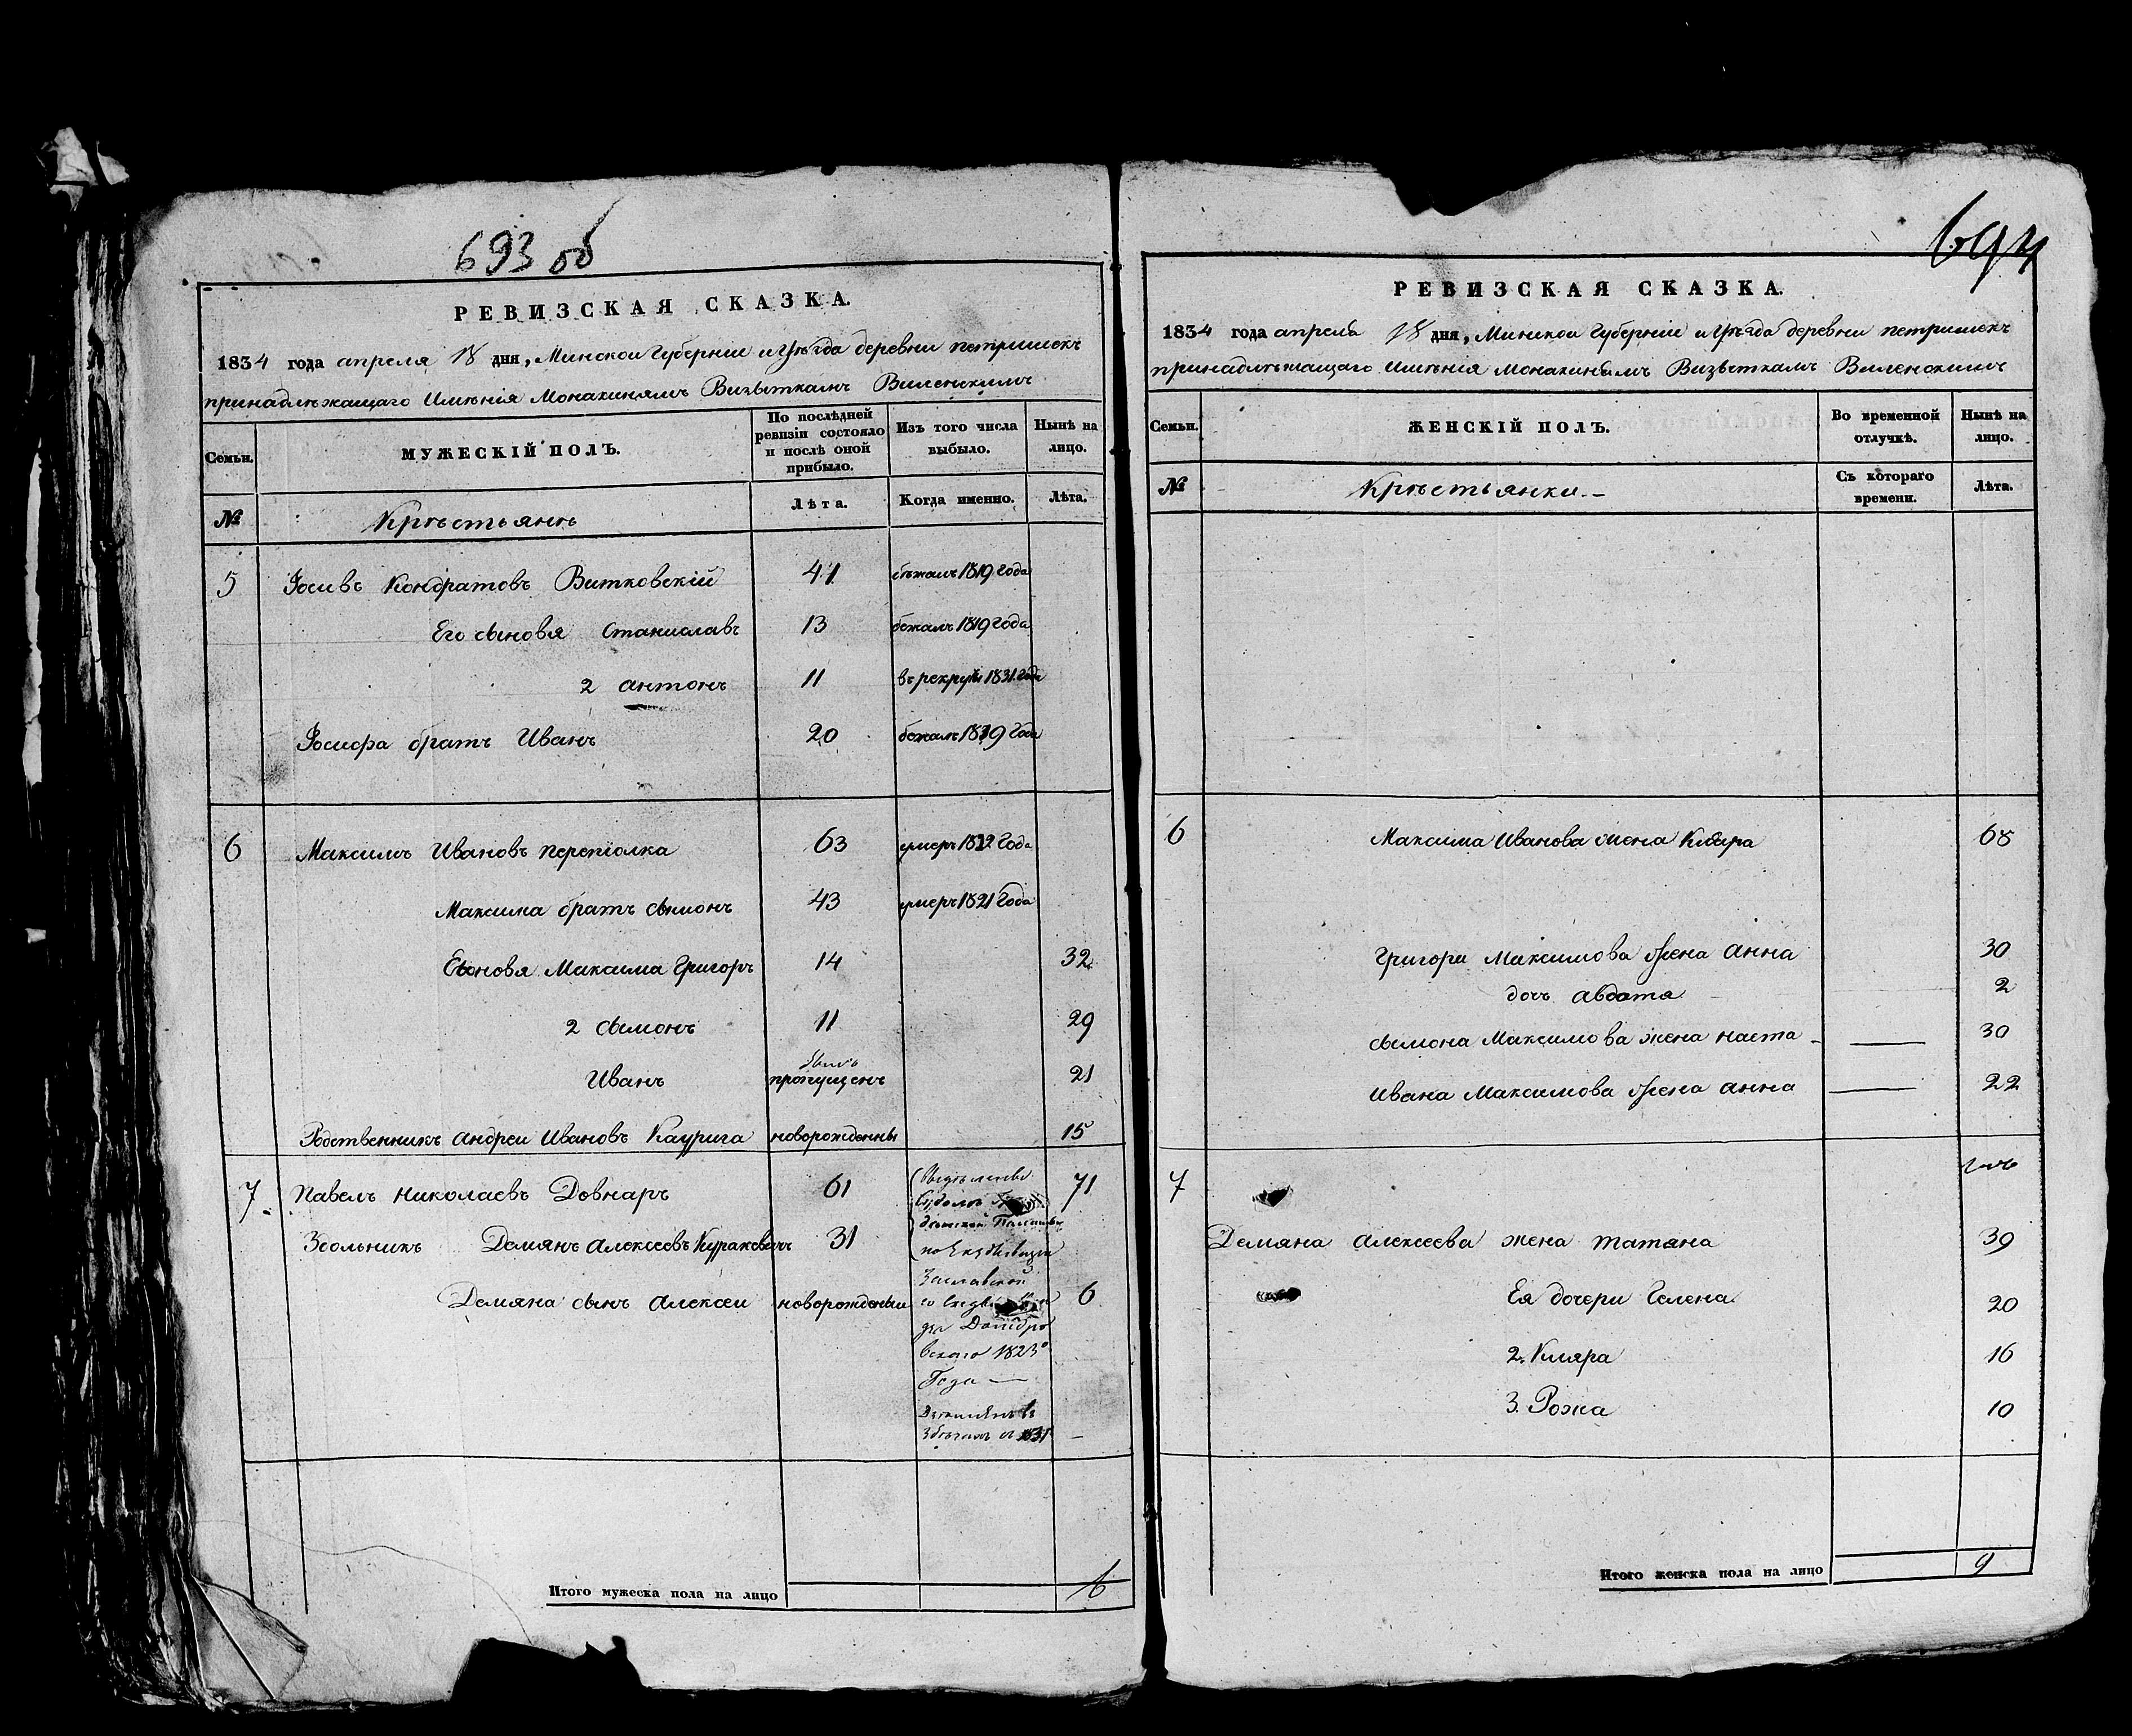 693 об
РЕВИЗСКАЯ СКАЗКА.
1834 года апреля 18 дня, Минской Губерніи и Уѣзда деревни петришекъ
принадлѣжащаго Имѣнія Монахинямъ Визѣткамъ Виленскимъ
Семьи.
МУЖЕСКІЙ ПОЛЪ.
По послѣдней ревизіи состояло и послѣ оной прибыло.
Изъ того числа выбыло.
Нынѣ на лицо.
№
Крѣстьянѣ
Лѣта.
Когда именно.
Лѣта.
5 Іосивъ Кондратовъ Витковскій 41 бѣжалъ 1819 года
Его сыновя Станиславъ 13 бежалъ 1819 года
2 антонъ 11 въ рекруты 1831 года
Іосифа братъ Иванъ 20 бежалъ 1819 года
6 Максимъ Ивановъ перепіолка 63 умеръ Года
Максима братъ сымонъ 43 умеръ 1821 Года
Сыновя Максима Григоръ 14 32
2 сымонъ 11 29
Иванъ былъ пропущенъ 21
Родственникъ андреи Ивановъ Каурига новорожденны 15
7 Павелъ Николаевъ Довнаръ 61 71
Демянъ Алексеевъ Куракевичъ 31
Демяна сынъ Алексеи новорожденыи 6
Заславской
1823
Года —
Итого мужеска пола на лицо 6
694
РЕВИЗСКАЯ СКАЗКА.
1834 года апреля 18 дня, Минской Губерніи и Уѣзда деревни петришекъ
принадлѣжащаго Имѣнія Монахинямъ Визѣткамъ Виленскимъ
Семьи.
ЖЕНСКІЙ ПОЛЪ.
Во временной отлучкѣ.
Нынѣ на лицо.
№
Крѣстьянки.—
Съ котораго времени.
Лѣта.
6 Максима Иванова жена Кляра 68
Григори Максимова жена Анна 30
дочь авдотя 2
сымона Максимова жена наста — 30
Ивана Максимова жена анна — 22
7
Демяна Алексеева жена татяна 39
Ея дочери Гелена 20
2. Кляра 16
3. Рожа 10
Итого женска пола на лицо 9